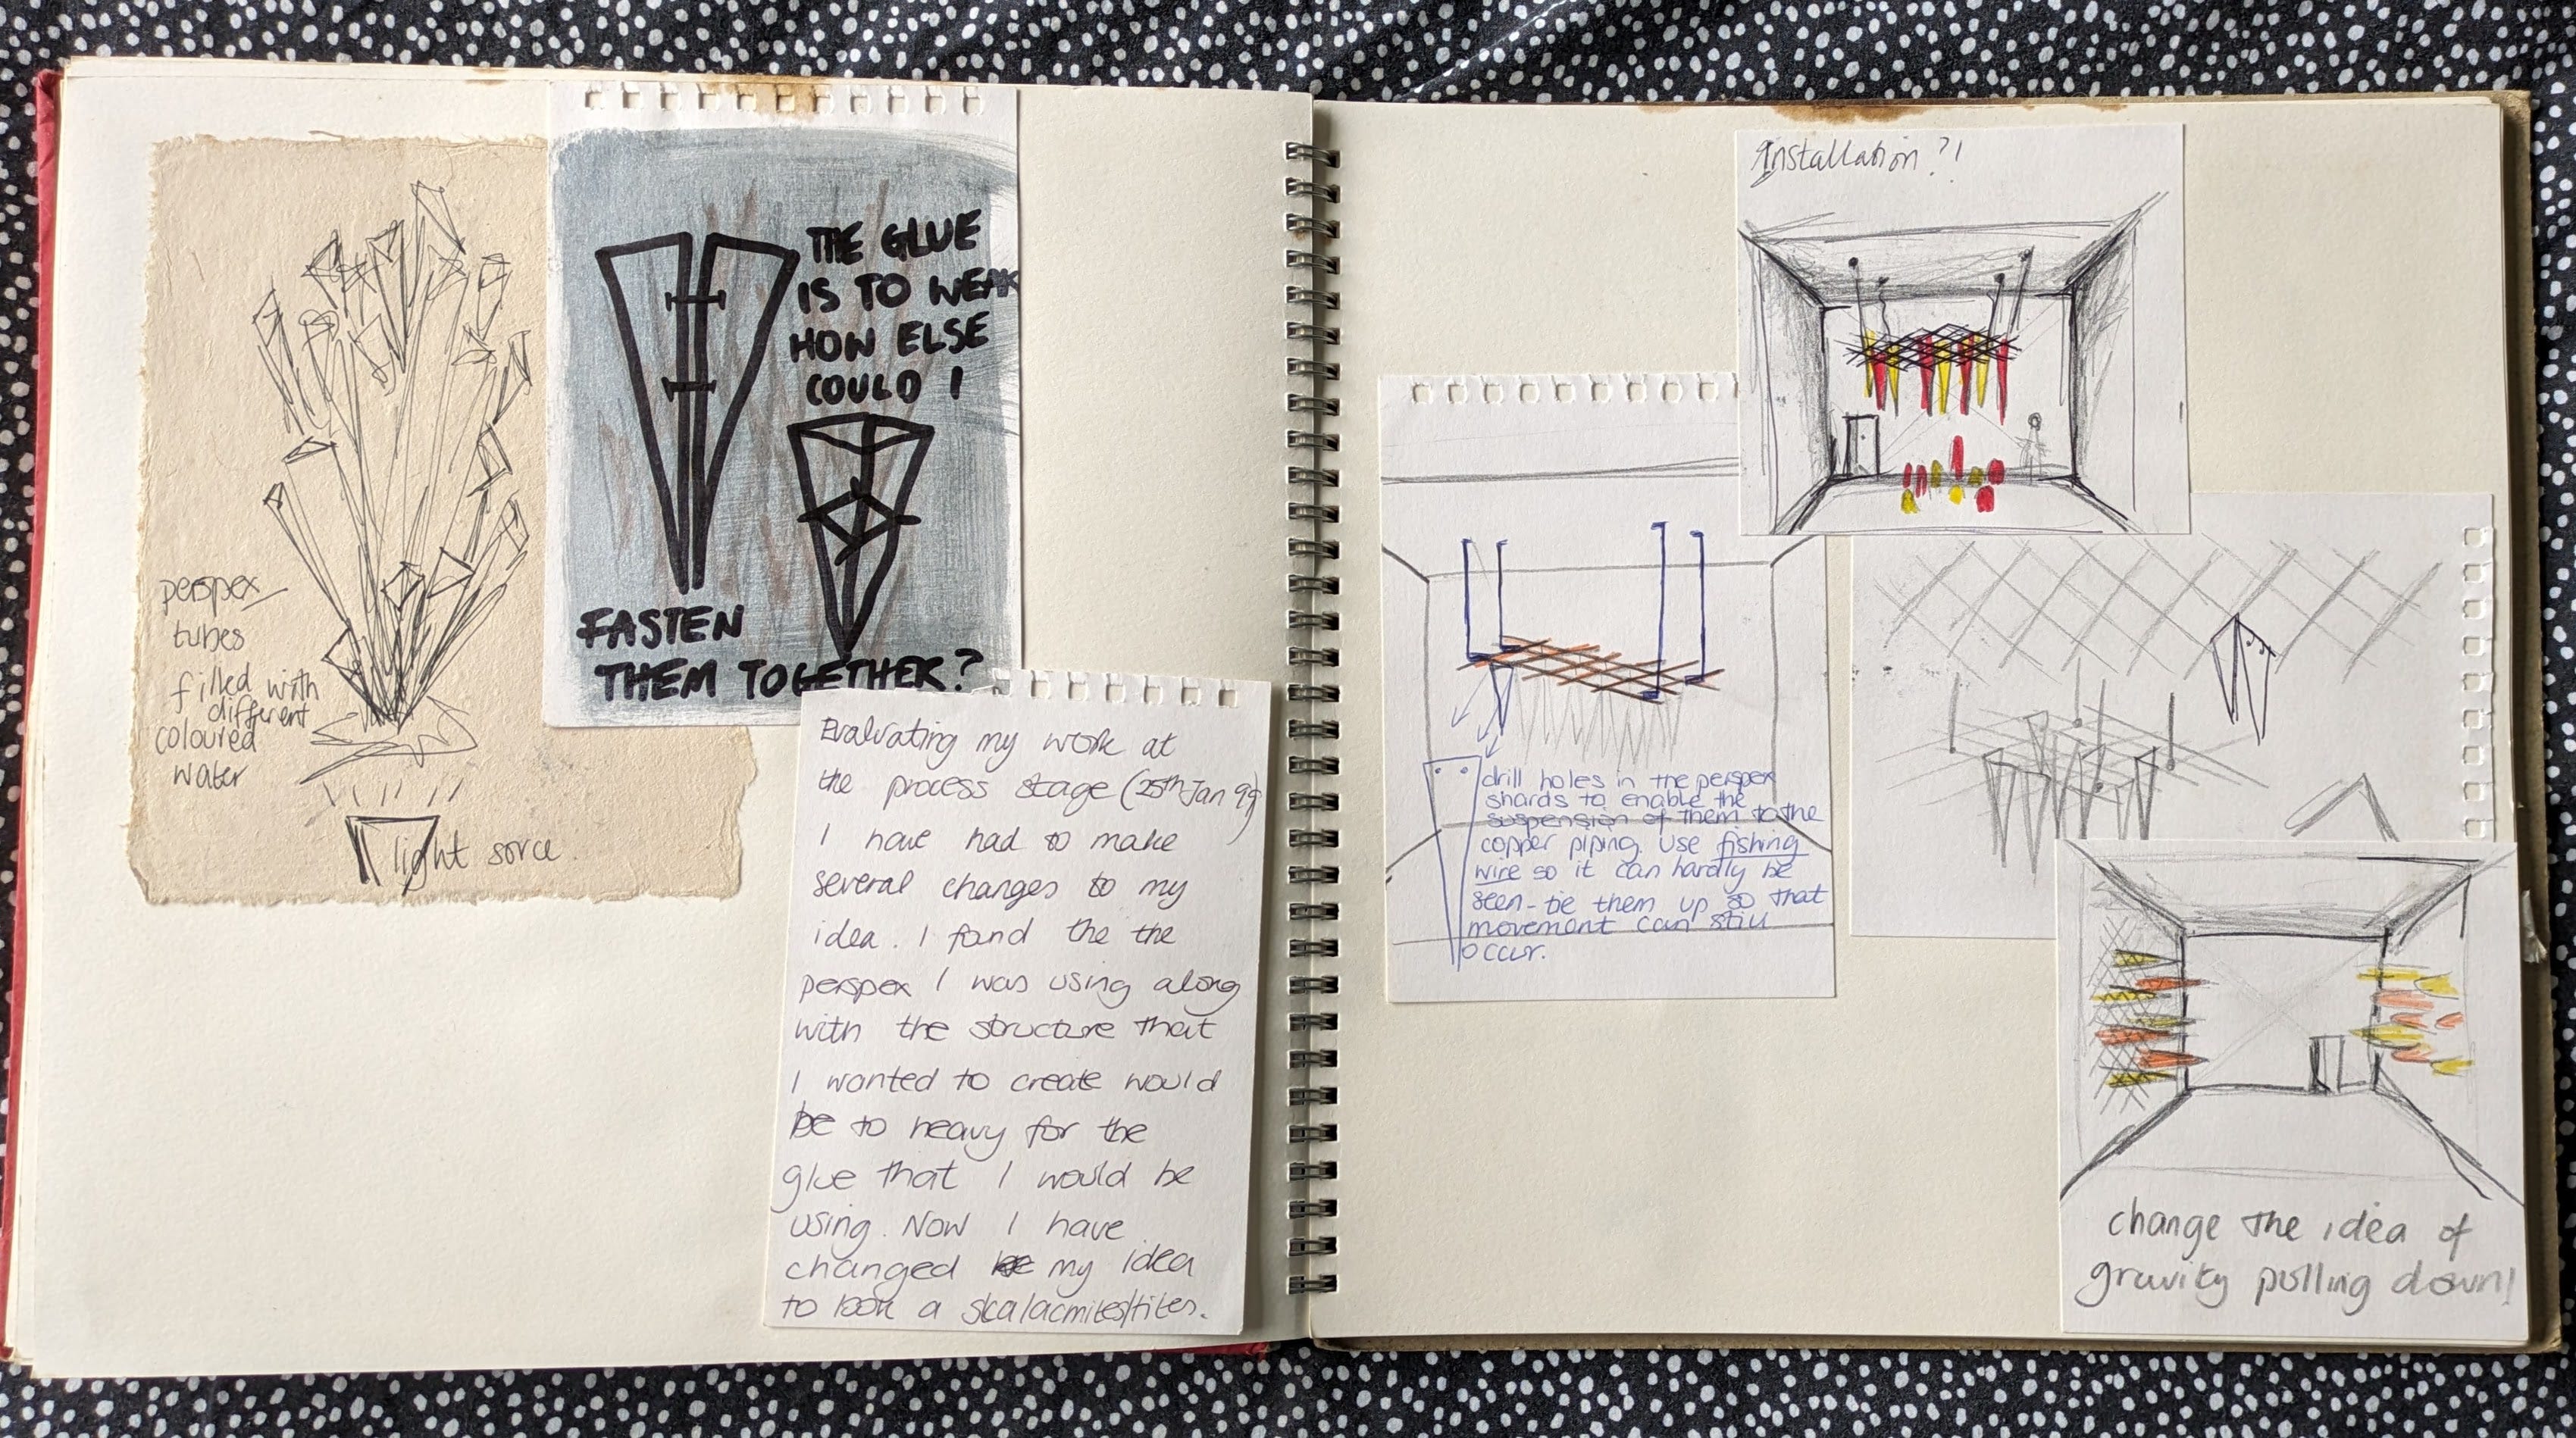 perspex
tubes
filled with
different
coloured
water
light sorce.
THE GLUE
IS TO WEAK
HOW ELSE
COULD I
FASTEN
THEM TOGETHER?
Evaluating my work at
the process stage (25th Jan 99)
I have had to make
several changes to my
idea. I found the the
perspex I was using along
with the structure that
I wanted to create would
be to heavy for the
glue that I would be
using. Now I have
changed my idea
to look a skalacmites/tites.
Installation?!
drill holes in the perspex
shards to enable the
suspension of them to the
copper piping. Use fishing
wire so it can hardly be
seen - tie them up so that
movement can still
occur.
change the idea of
gravity pulling down!